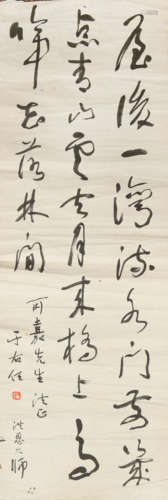 屋後一灣流水門前幾
点青山雲去月来橋上鳥
啼花落林間
嘉先生法正
于右任